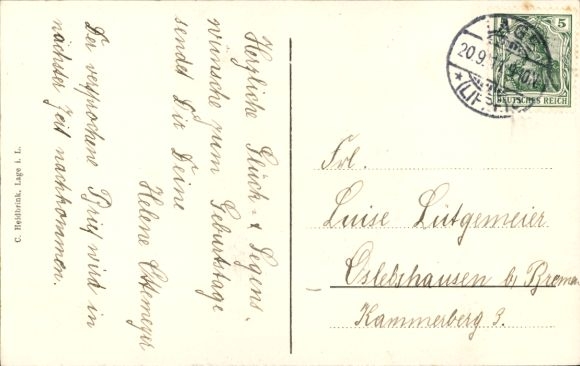 Herzliche Glück- & Segens-
wünsche zum Geburtstage
sendet Dir Deine
Helene Ostemeyer
Der versprochene Brief wird in
nächster Zeit nachkommen.
C. Heidbrink, Lage i. L.
LAGE
20.9.
* (LIPPE)
5
DEUTSCHES REICH
Frl.
Luise Lütgemeier
Oslebshausen b/ Bremen
Kammerberg 3.